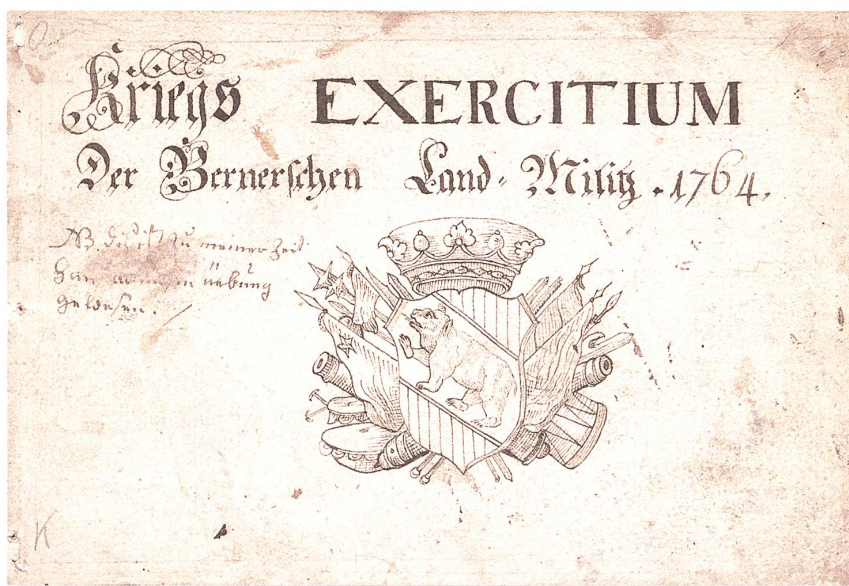 Kriegs EXERCITIUM
Der Bernerschen Land-Militz. 1764.
NB. dis ist zu meiner Zeit
in übung
gewesen.
K